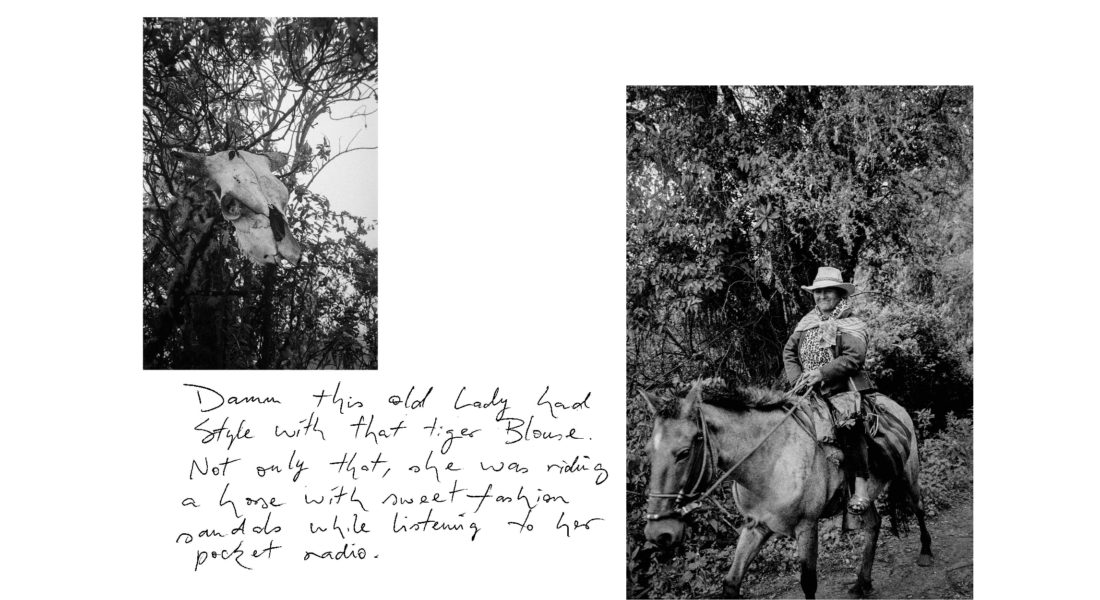 Damn this old Lady had
Style with that tiger Blouse.
Not only that, she was riding
a horse with sweet fashion
sandals while listening to her
pocket radio.